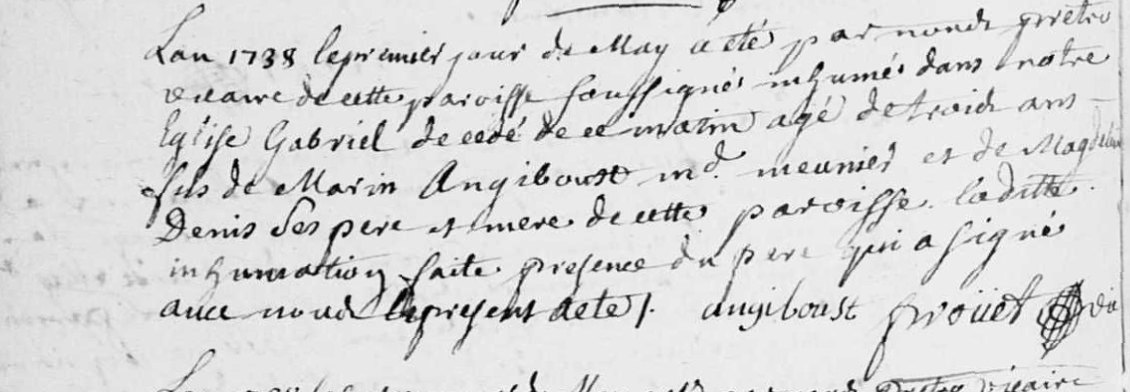 Lan 1738 le premier jour de May a eté par nous pretre
vicaire de cette paroisse soussigné inhumé dans notre
Eglise Gabriel decedé de ce matin agé de trois ans
fils de Marin Angiboust md. meunier et de Magdelein
Denis Ses pere et mere de cette paroisse. laditte
inhumation faite presence du pere qui a signé
avec nous le present acte /. angiboust
Lan de May vicaire